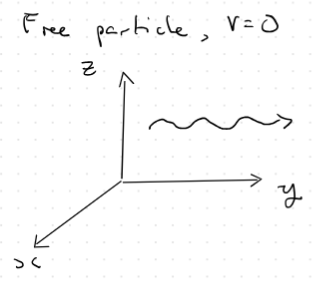 Free particle, V=0
z
y
x